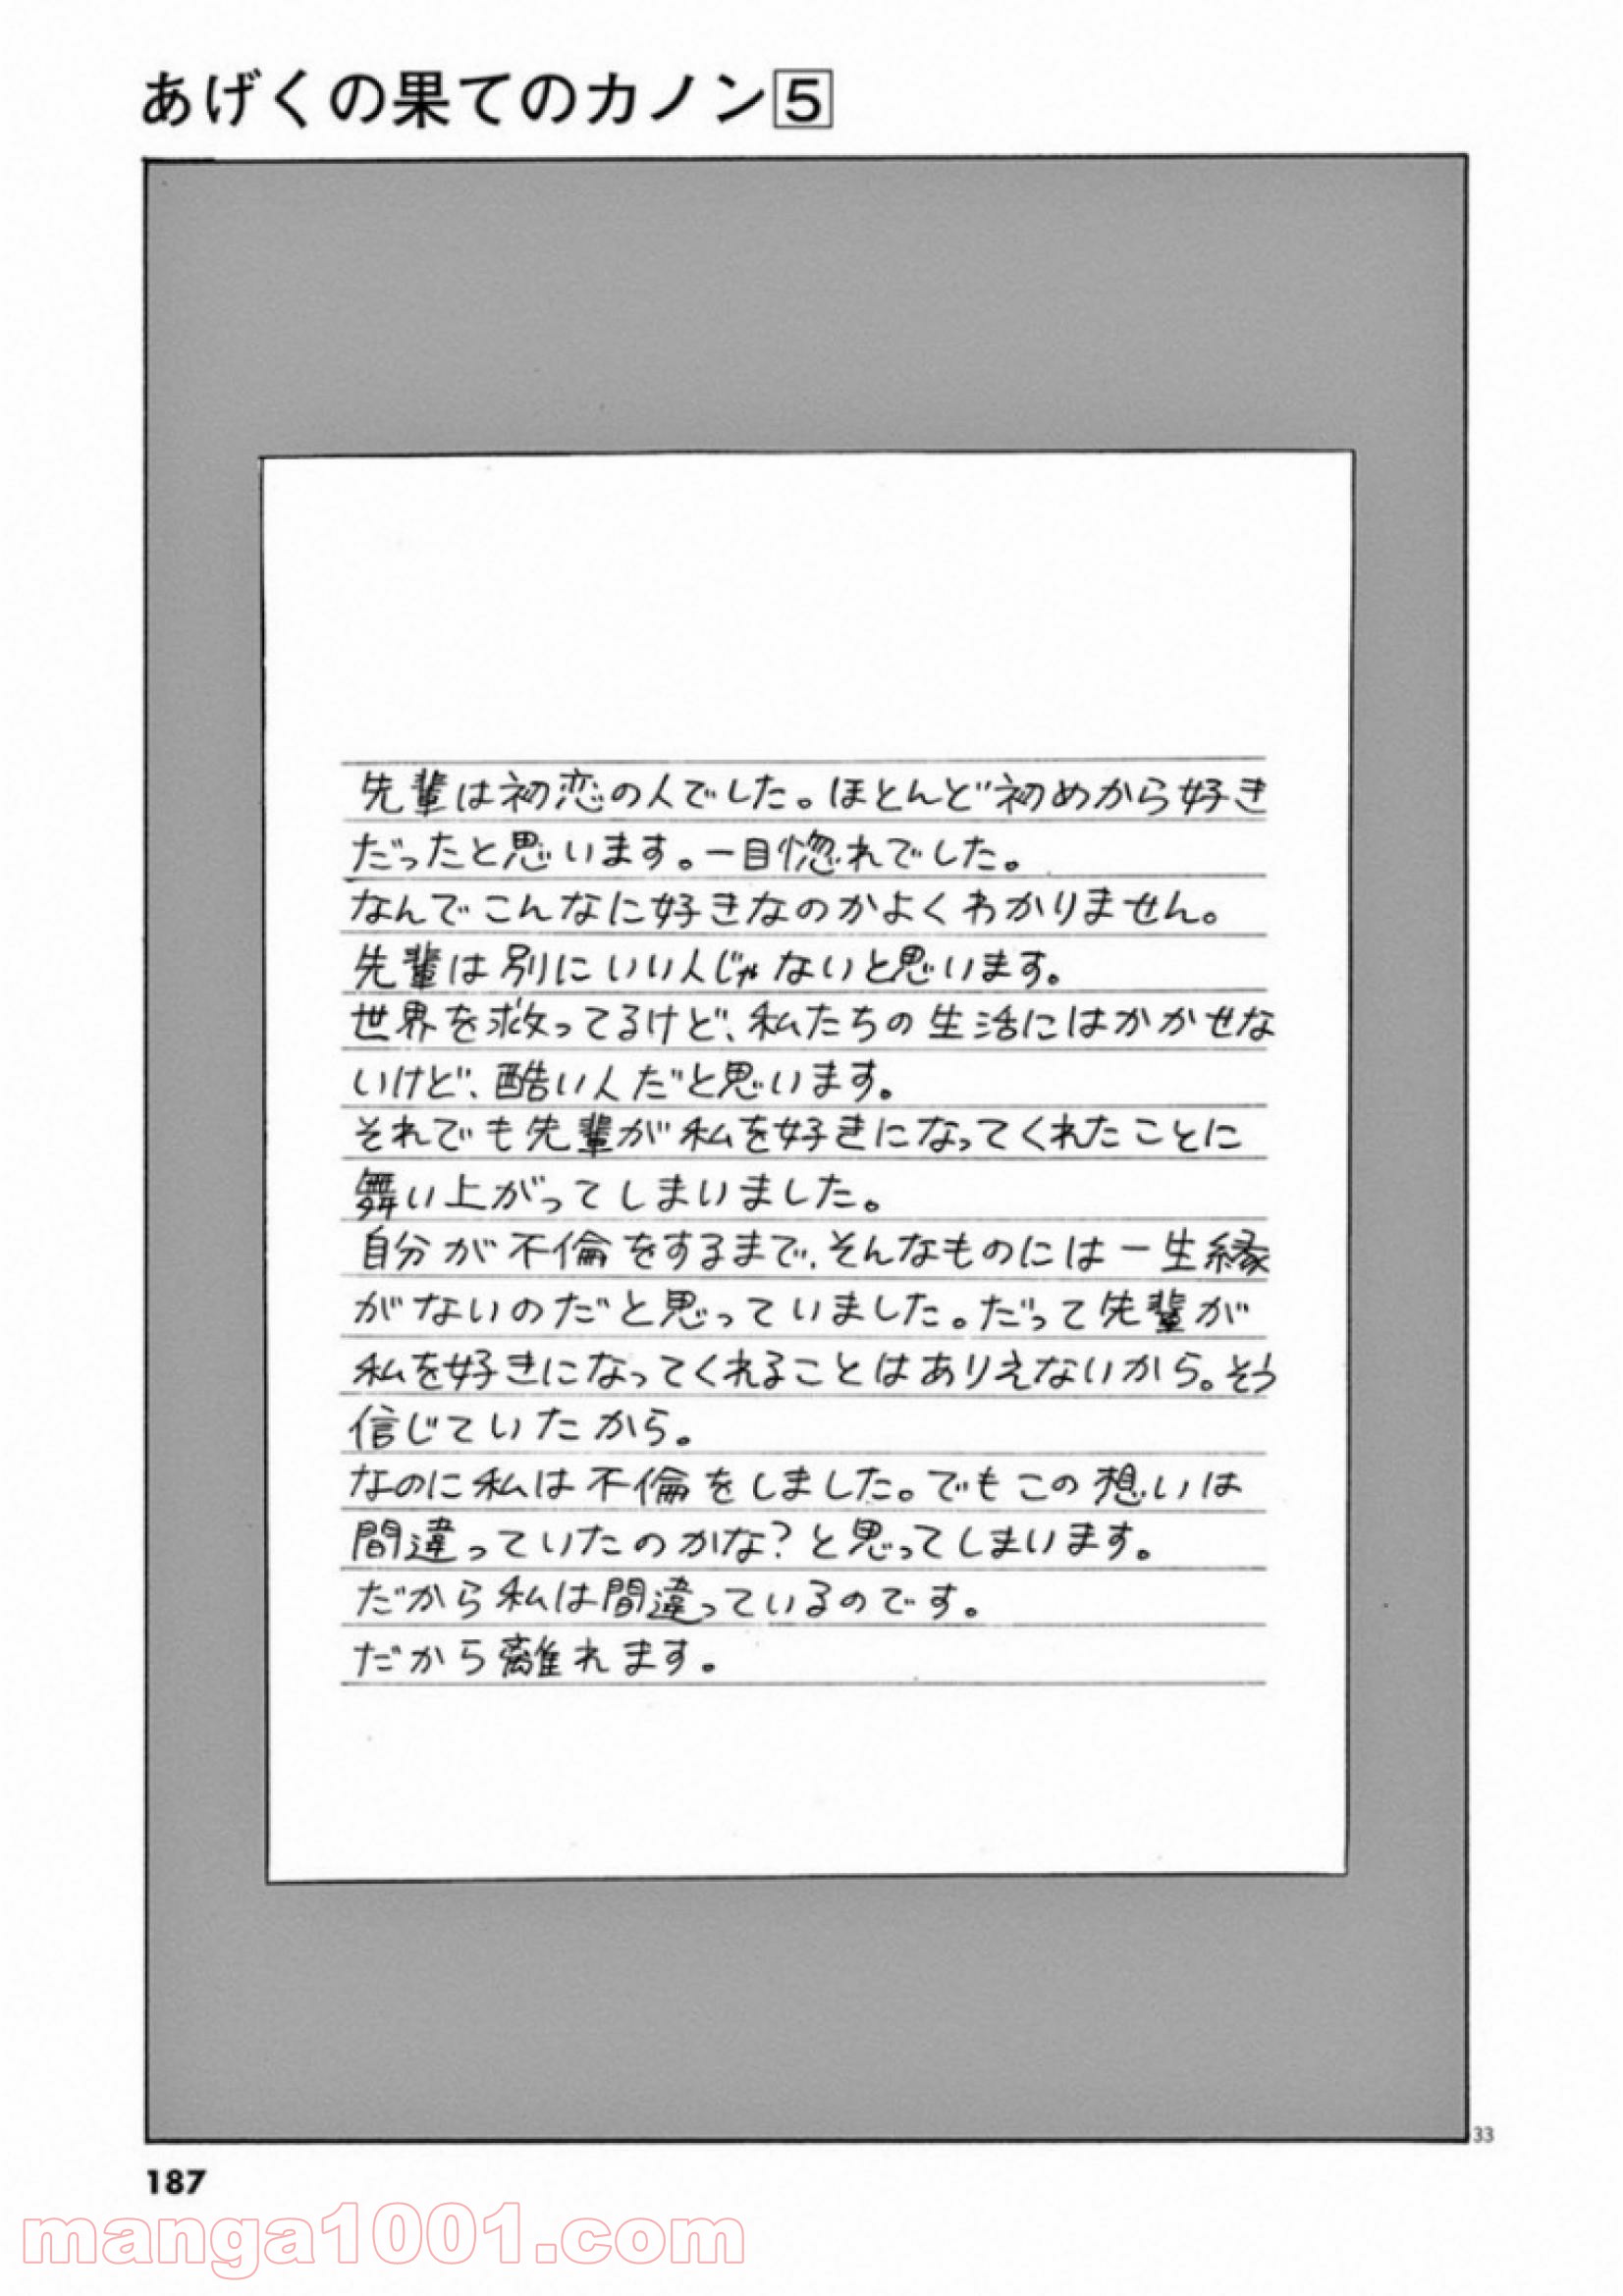 あげくの果てのカノン5
先輩は初恋の人でした。ほとんど初めから好き
だったと思います。一目惚れでした。
なんでこんなに好きなのかよくわかりません。
先輩は別にいい人じゃないと思います。
世界を救ってるけど、私たちの生活にはかかせな
いけど、酷い人だと思います。
それでも先輩が私を好きになってくれたことに
舞い上がってしまいました。
自分が不倫をするまで、そんなものには一生縁
がないのだと思っていました。だって先輩が
私を好きになってくれることはありえないから。そう
信じていたから。
なのに私は不倫をしました。でもこの想いは
間違っていたのかな?と思ってしまいます。
だから私は間違っているのです。
だから離れます。
33
187
manga1001.com